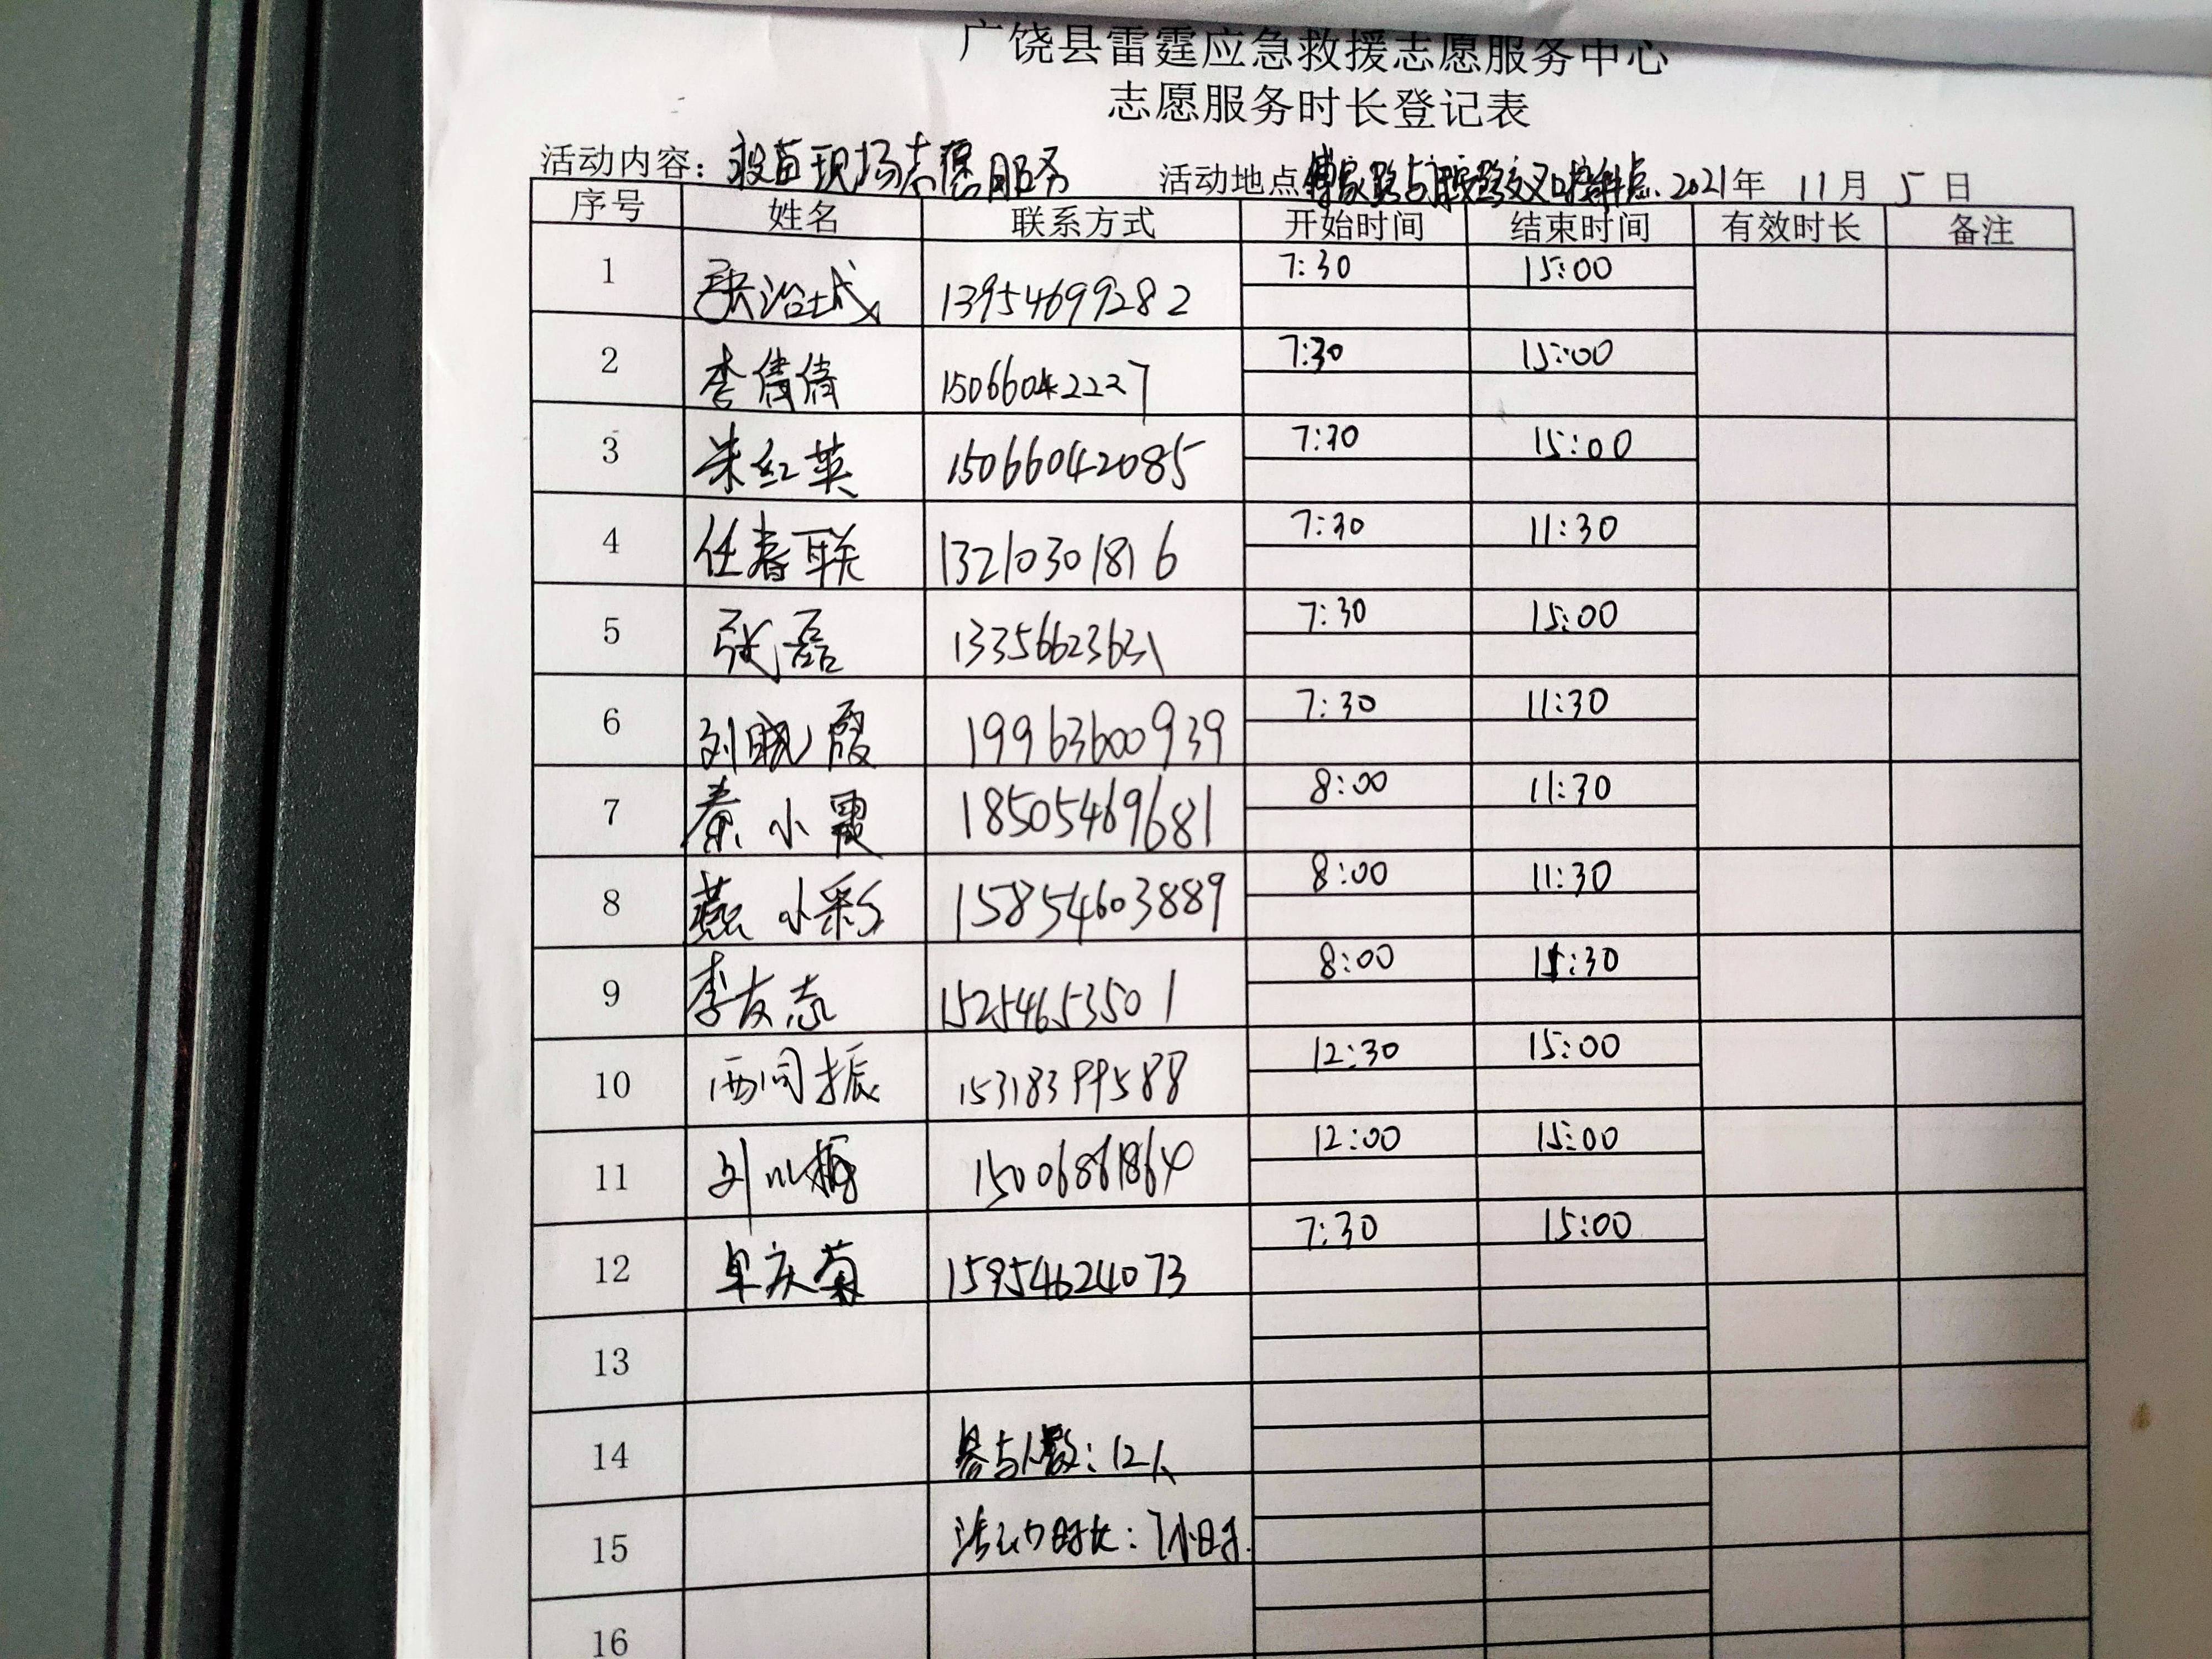 广饶县雷霆应急救援志愿服务中心
志愿服务时长登记表
活动内容： 现场志愿服务 活动地点 2021年 11月 5日
序号 姓名 联系方式 开始时间 结束时间 有效时长 备注
1 13954699282 7:30 15:00
2 李倩倩 15066042227 7:30 15:00
3 朱红英 15066042085 7:30 15:00
4 任春联 13210301816 7:30 11:30
5 张磊 13356623631 7:30 15:00
6 刘晓霞 19963600939 7:30 11:30
7 秦小霞 18505469681 8:00 11:30
8 燕小彩 15854603889 8:00 11:30
9 李友志 15254653501 8:00
10 西同振 15318399588 12:30 15:00
11 15006861864 12:00 15:00
12 卓庆菊 15954624073 7:30 15:00
13
14 参与人数：12人
15 活动时长：7小时.
16